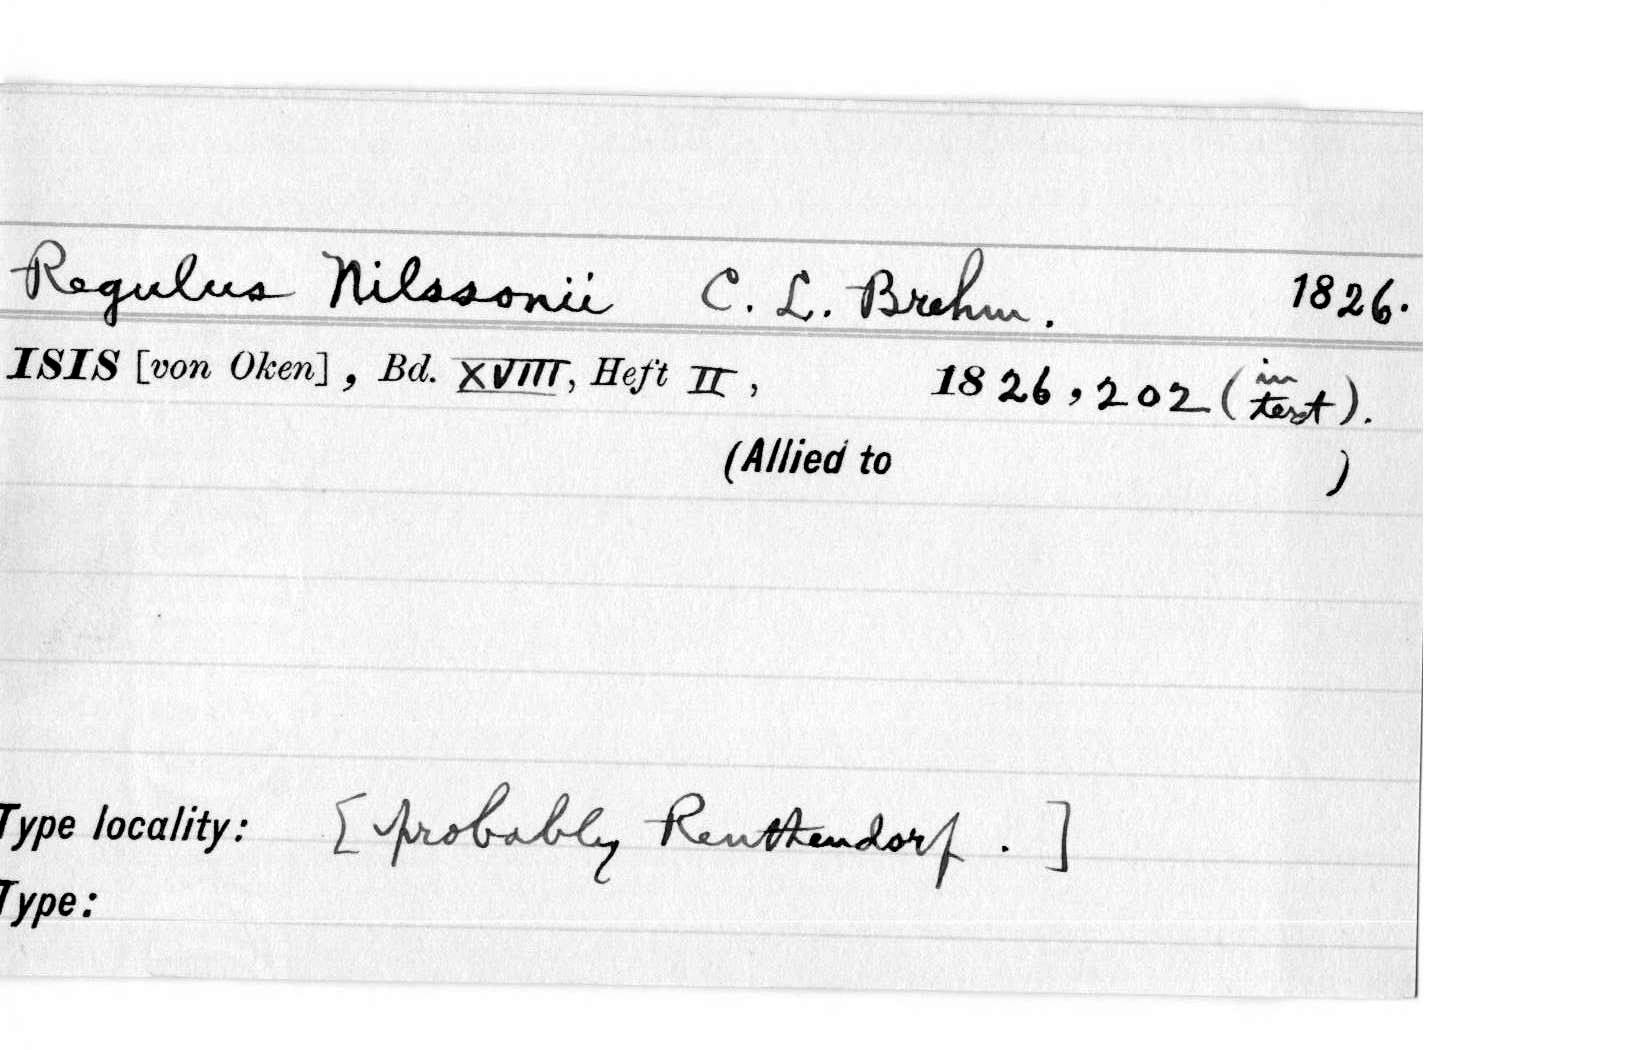 Regulus Nilssonii C. L. Brehm. 1826.
ISIS [von Oken], Bd. XVIII, Heft II, 1826, 202 (in text).
(Allied to )
Type locality: [probably Renthendorf.]
Type: